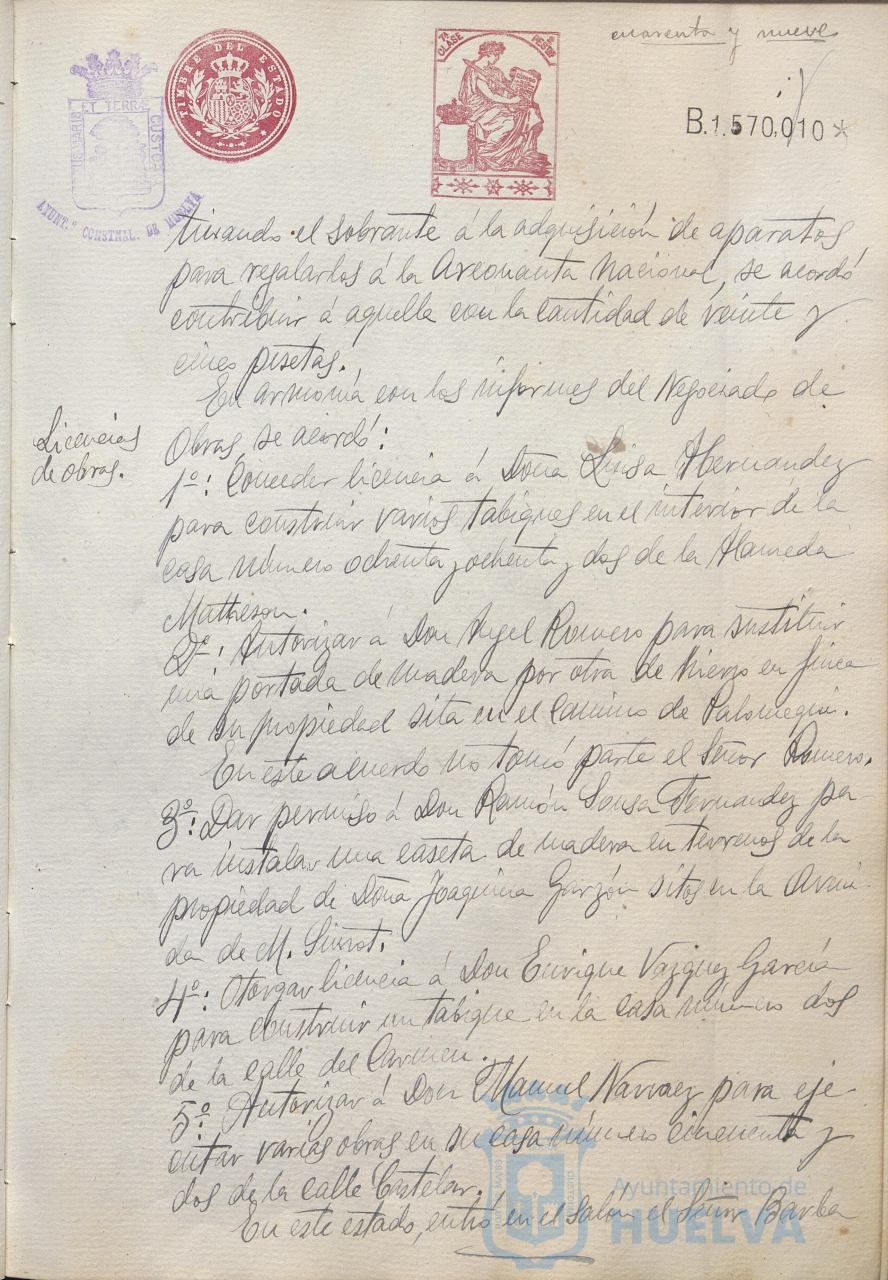 cuarenta y nueve
TIMBRE DEL ESTADO
7ª CLASE
PESETAS
ET TERRÆ CUSTOS
AYUNT.º CONSTNAL. DE HUELVA
B.1.570,010 *
tinando el sobrante á la adquisición de aparatos
para regalarlos á la Areonauta Nacional, se acordó
contribuir á aquella con la cantidad de veinte y
cinco pesetas.
En armonía con los informes del Negociado de
Obras, se acordó:
Licencias
de obras.
1º: Conceder licencia á Doña Luisa Hernandez
para construir varios tabiques en el interior de la
casa número ochenta y ochenta y dos de la Alameda
Mattheson.
2º: Autorizar á Don Angel Romero para sustituir
una portada de madera por otra de hierro en finca
de su propiedad sita en el Camino de Palomeque.
En este acuerdo no tomó parte el Señor Romero.
3º: Dar permiso á Don Ramón Sousa Fernandez pa-
ra instalar una caseta de madera en terrenos de la
propiedad de Doña Joaquina Garzón sitos en la Aveni-
da de M. Siurot.
4º: Otorgar licencia á Don Enrique Vazquez García
para construir un tabique en la casa número dos
de la calle del Carmen.
5º: Autorizar á Don Manuel Narvaez para eje-
cutar varias obras en su casa número cincuenta y
dos de la calle Castelar.
En este estado, entró en el salón el Señor Barba
Ayuntamiento de
HUELVA